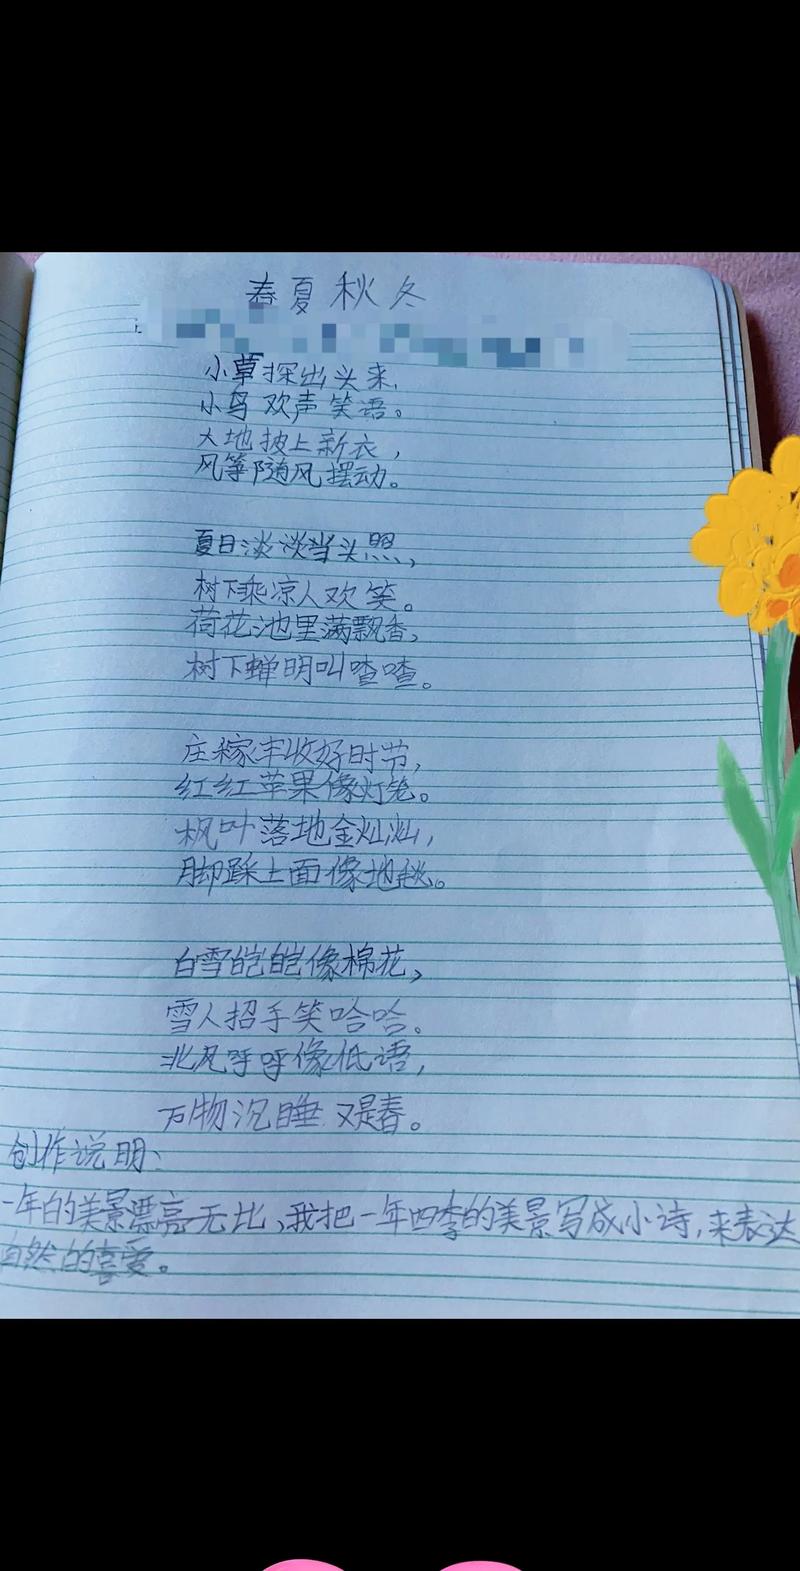 春夏秋冬
小草探出头来,
小鸟欢声笑语。
大地披上新衣,
风筝随风摆动。
夏日淡淡当头照,
树下乘凉人欢笑。
荷花池里满飘香,
树下蝉明叫喳喳。
庄稼丰收好时节,
红红苹果像灯笼。
枫叶落地金灿灿,
脚踩上面像地毯。
白雪皑皑像棉花,
雪人招手笑哈哈。
北风呼呼像低语,
万物沉睡又是春。
创作说明:
一年的美景漂亮无比、我把一年四季的美景写成小诗,来表达
自然的喜爱。